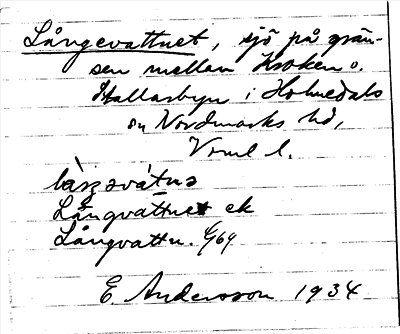 Långevattnet, sjö på grän-
sen mellan Kroken o.
Hallarbyn i Holmedals
sn Nordmarks hd,
Vrml l.
Långvattnet ek
Långvattn.
E. Andersson 1934